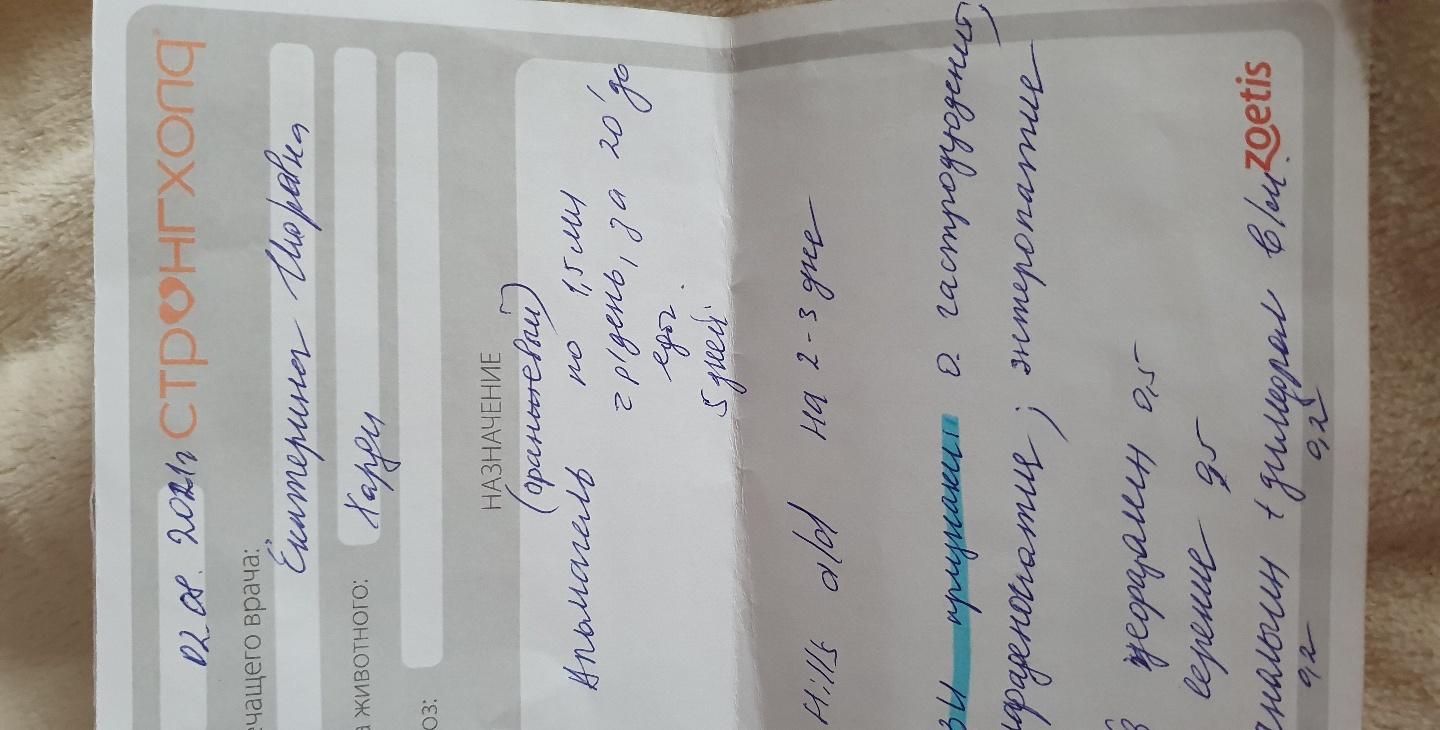 02.08.2021г СТРОНГХОЛД
ечащего врача:
Екатерина Игоревна
а животного:
Харди
оз:
НАЗНАЧЕНИЕ
(оранжевый)
Алмагель по 1,5 мл
2 р/день, за 20' до
еды.
5 дней.
Hill's d/d на 2-3 дне
зи признаки о. гастродуоденит,
; энтеропатие
0,5
серение 0,5
анальгин + димедрол в/м.
0,2 0,2
zoetis